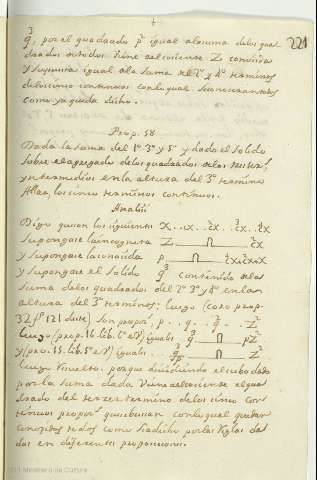 221
q³, por el quadrado p² igual ala suma delos qua
drados de todos Viene al cociente Z conocida
y supuesta igual ala suma del 2º y 4º terminos
delos cinco continuos con lo qual
como ya queda dicho.
Prop. 58
Dada la suma del 1º 3º y 5º y dado el Solido
sobre el agregado delos quadrados delos
y intermedios en la altura del 3º termino
Allar, los cinco terminos continuos.
Analisi
Digo que son los siguientes X
Supongase la incognita Z
y supongase la conocida p
y supongase el Solido q³ contenido dela
suma delos quadrados del 2º 3º y 4º en la
altura del 3º terminos: luego (coro. prop.
32 fº 121 deste) Son propor. p . q . q² . Z²
Luego (prop. 16. lib. 6º e V) iguales q³ pZ²
y (pro. 15. lib. 5º e V) iguales q³/p Z²
Luego resuelto, porque dividiendo el cubo dado
por la suma dada Viene al cociente el qua
drado del terzer termino delos cinco con
tinuos propor. que se buscan con lo qual quedan
conocidos todos como se a dicho por las Reglas da
das en diferentes proposiciones.
Ministerio de Cultura